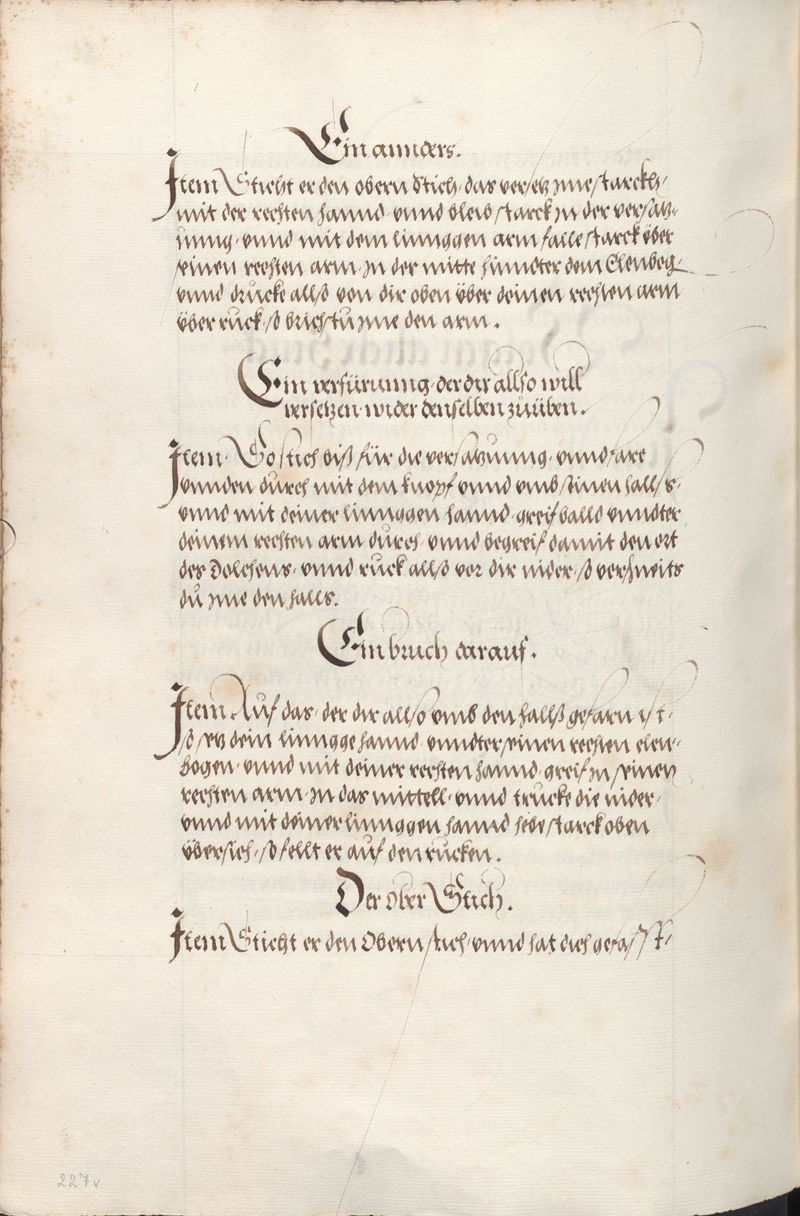 Ein annders.
Item Sticht er den obern Stich, das versetz ime starckh,
mit der rechten hannd, vnnd bleib starck in der versatz-
unng, vnnd mit dem linnggen arm falle starck vber
seinen rechten arm, in der mitte hinndter dem Elenbog
vnnd drucke allso von dir oben vber deinen rechten arm
vber ruck, so brichstu ime den arm.
Ein verfürunng, der dir allso will
versetzen, wider denselben zuüben.
Item, So stich biss für die versatzunng, vnnd fare
vnnden durch mit dem knopf vnnd vmb seinen hallss,
vnnd mit deiner linnggen hannd, greif balld vnndter
deinem rechten arm durch, vnnd begreif damit den ort
des Dolchens, vnnd ruck allso vor dir nider, so versneits
du ime den halls.
Ein bruch darauf.
Item Auf das, der dir allso vmb den hallss gefarn ist,
so setz dein linngge hannd, vnndter seinen rechten elen-
bogen, vnnd mit deiner rechten hannd, greif in seinen
rechten arm, in das mittell, vnnd trucke die nider,
vnnd mit deiner linnggen hannd hebe starck oben
vbersich, so fellt er auf den rucken.
Der ober Stich.
Item Sticht er den Obern stich, vnnd hat dich gefasst,
227v